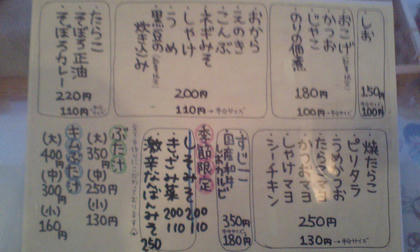 ・しお
150円
100円
・おこげ
・かつお
・じゃこ
・のりの佃煮
180円
100円→半分サイズ
・おから
・えのき
・こんぶ
・ネギみそ
・しゃけ
・うめ
・黒豆の炊きこみ
200円
110円→半分サイズ
・たらこ
・そぼろ正油
・そぼろカレー
220円
110円
・焼たらこ
・ピリタラ
・うめかつお
・たらこマヨ
・かつおマヨ
・しゃけマヨ
・シーチキン
250円
130円→半分サイズ
すじこ
国産和牛しおカルビ
350円
180円
季節限定
・しそみそ 200 110
・きざみ菜 200 110
・激辛なんばんみそ 250
ぶた汁
(大) 350円
(中) 250円
(小) 130円
キムぶた汁
(大) 400円
(中) 300円
(小) 160円